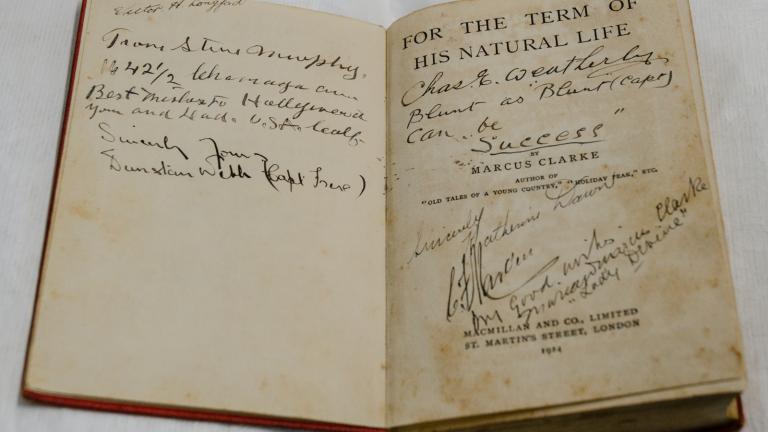 Victor H Longford
From Steve Murphy.
1642½ ave
Best wishes to Hollywood
you and Calif
Sincerely Yours
Dunstan Webb (Capt Frere)
FOR THE TERM OF
HIS NATURAL LIFE
Chas. E. Weatherby
Blunt as Blunt (Capt)
can be
"Success"
BY
MARCUS CLARKE
AUTHOR OF
"OLD TALES OF A YOUNG COUNTRY," "HOLIDAY PEAK," ETC.
Sincerely
Katherine Dawn
My Good wishes
Marion Marcus Clarke
"Lady Devine"
MACMILLAN AND CO., LIMITED
ST. MARTIN'S STREET, LONDON
1924